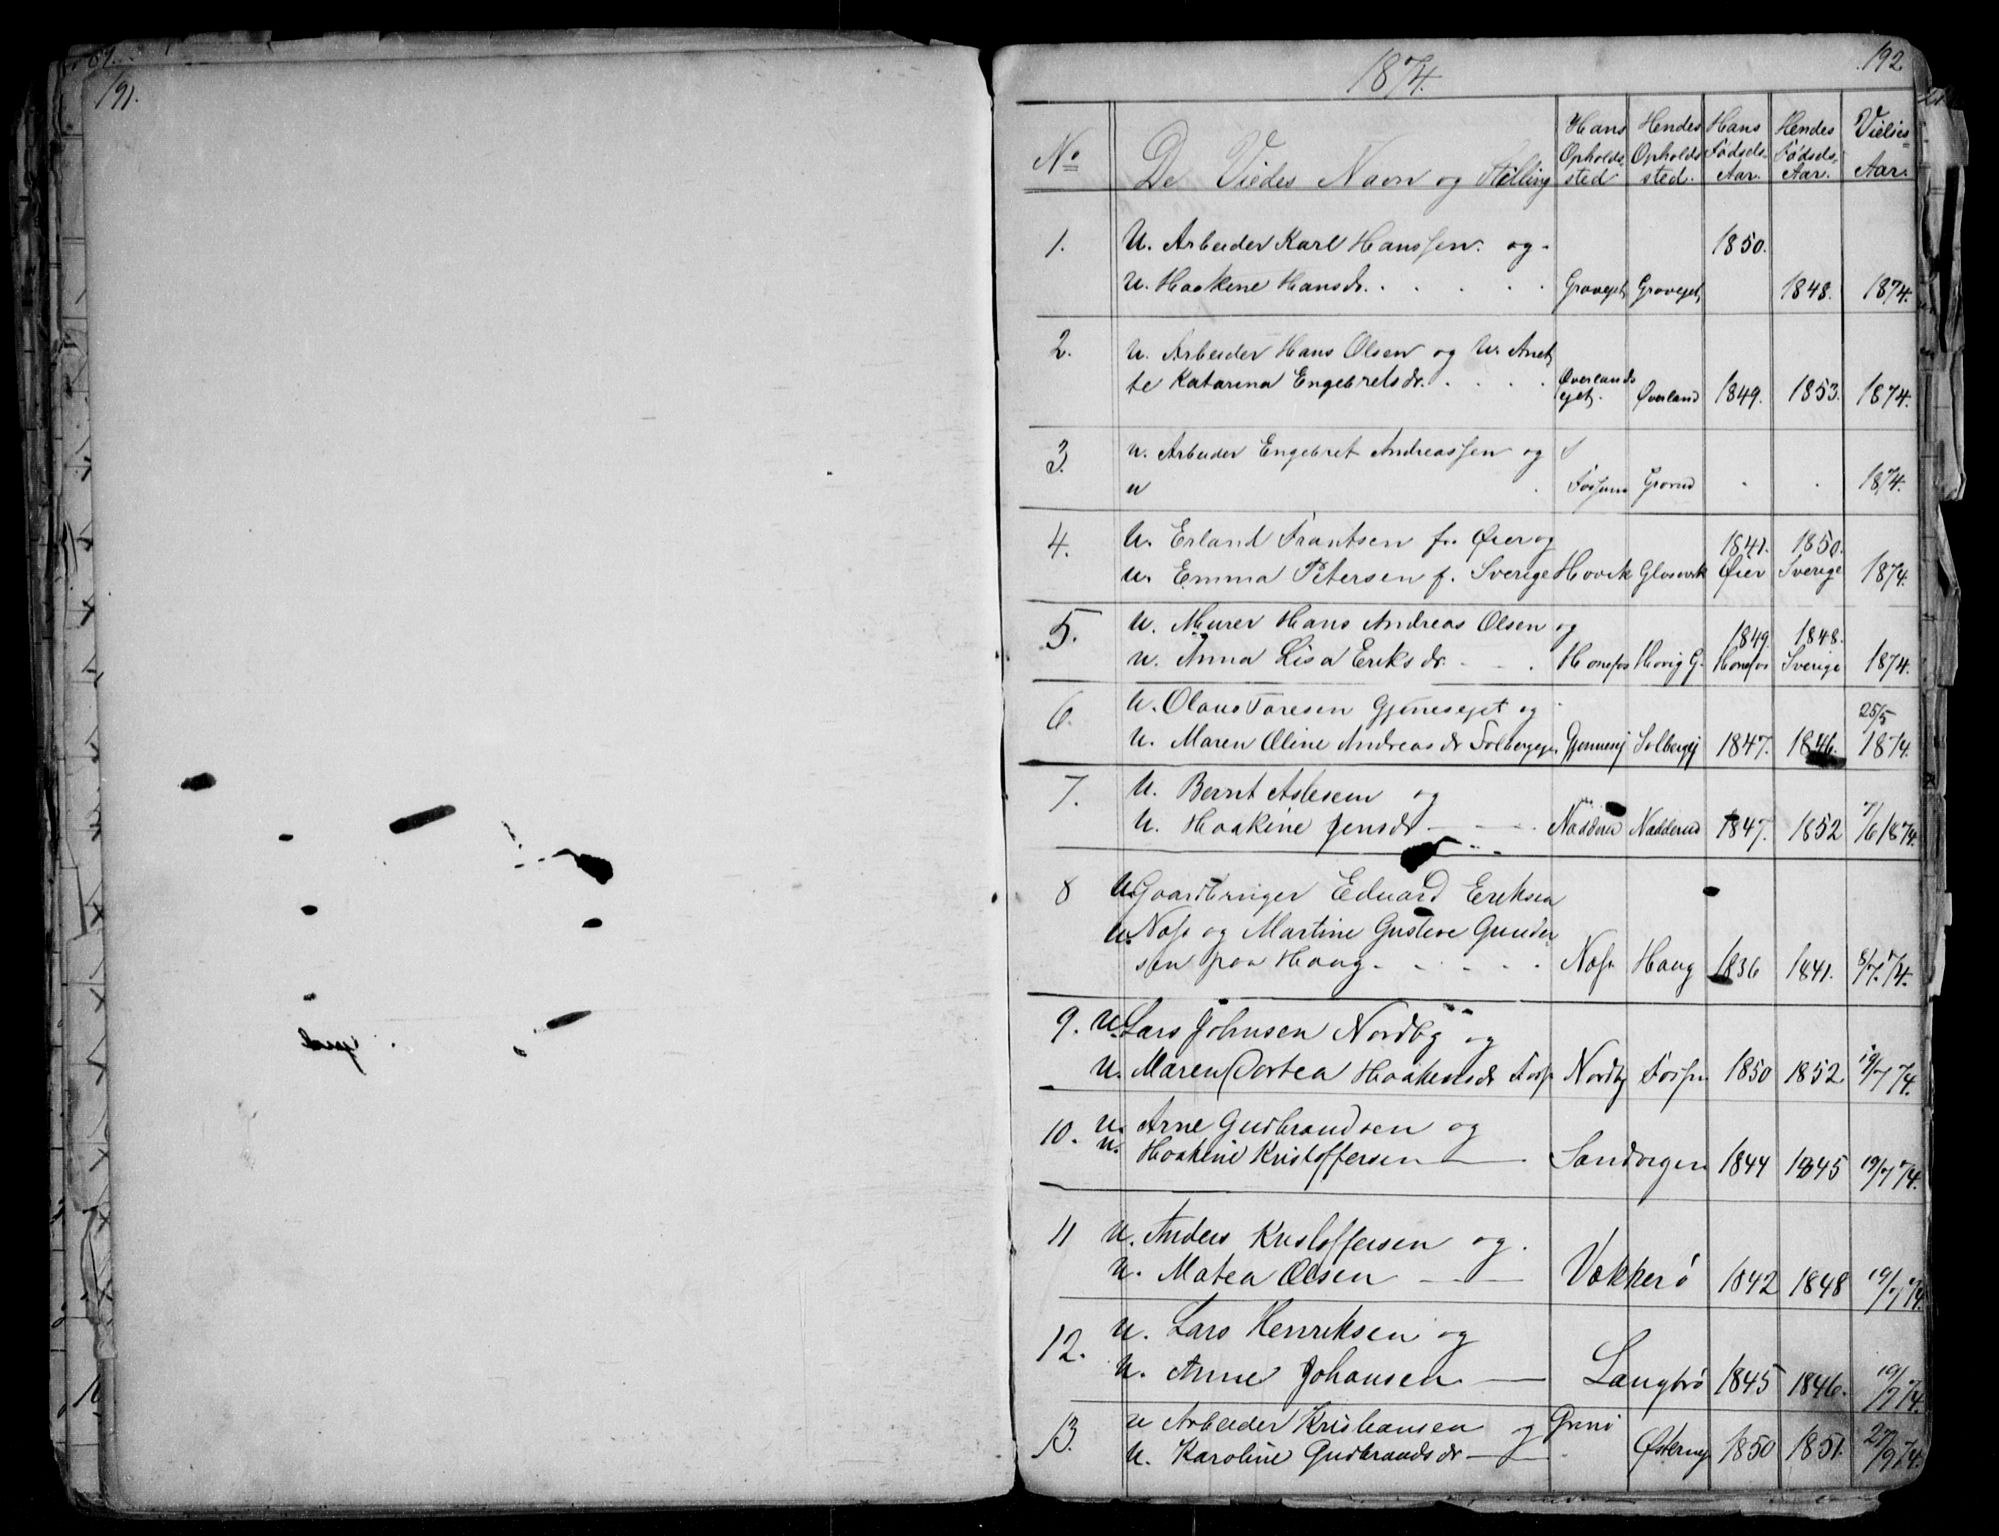 191.
192
1874.
No
De Viedes Navn og Stilling
Hans Opholds sted
Hendes Opholds sted.
Hans Fødsels- Aar.
Hendes Fødsels- Aar.
Vielses- Aar.
1. U. Arbeider Karl Hanssen. og 1850.
U. Haakene Hansdr. . . . . . Gravejet, Gravejet, 1848. 1874.
2. U. Arbeider Hans Olsen og U. Anet,
te Katarina Engebretsdr. . . . Øverlands ejet. Øverland 1849. 1853. 1874.
3. U. Arbeider Engebret Andreassen og
u . Fossum Grorud . . 1874.
4. U. Erland Frantsen fr. Øier og 1841. 1850.
U. Emma Petersen f. Sverige Høvik Øier Sverige 1874.
5. U. Murer Hans Andreas Olsen og 1849. 1848.
U. Anna Lisa Eriksdr. - - . Hønefos Høvig G. Hønefos Sverige 1874.
6. U. Olaus Toresen Gjønesejet og 25/5
U. Maren Oline Andreasdr Solbergej. Gjønnesej Solbergej 1847. 1846. 1874.
7. U. Bernt Aslesen og
U. Haakine Jensdr Nadderu Nadderud 1847. 1852 7/6 1874.
8 U. Gaardbruger Eduard Eriksen
U. Næs og Martine Gusteve Gunder
sen paa Haug. . . . . . Næs Haug 1836 1841. 5/7. 74.
9. U. Lars Johnsen Nordby og
U. Maren Dortea Haakensdr Foss Nordby Fossu 1850 1852 19/7 74.
10. U. Arne Gudbrandsen og
U. Haakine Kristoffersen Sandvigen 1844 1845 19/7 74.
11 U. Anders Kristoffersen og.
U. Matea Olsen Vækkerø 1842 1848 19/7 74.
12. U. Lars Henriksen og
U. Anne Johansen Langbrø 1845 1846. 19/7 74.
13. U Arbeider Kristiansen og
U. Karoline Gudbrandsdr Østernej 1850 1851. 27/9 74.